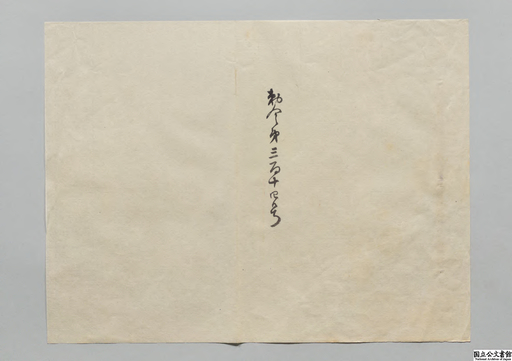 勅令第三百十四号
国立公文書館
National Archives of Japan